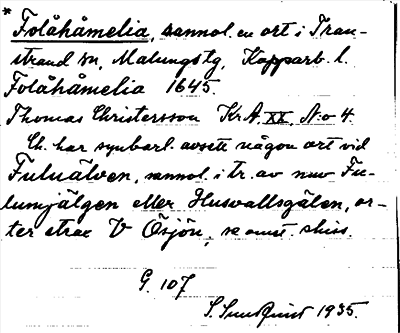 * Folåhåmelia, sannol. en ort i Tran-
strand sn, Malungs tg, Kopparb. l.
Folåhåmelia 1645.
Thomas Christersson Kr A. XX. N:o 4.
Ch. har synbarl. avsett någon ort vid
Fuluälven, sannol. i tr. av nuv Fu-
lumjälgen eller Husvallsgälen, or-
ter strax V Ösjön, se omst. skiss.
G. 107
S. Sundquist 1935.